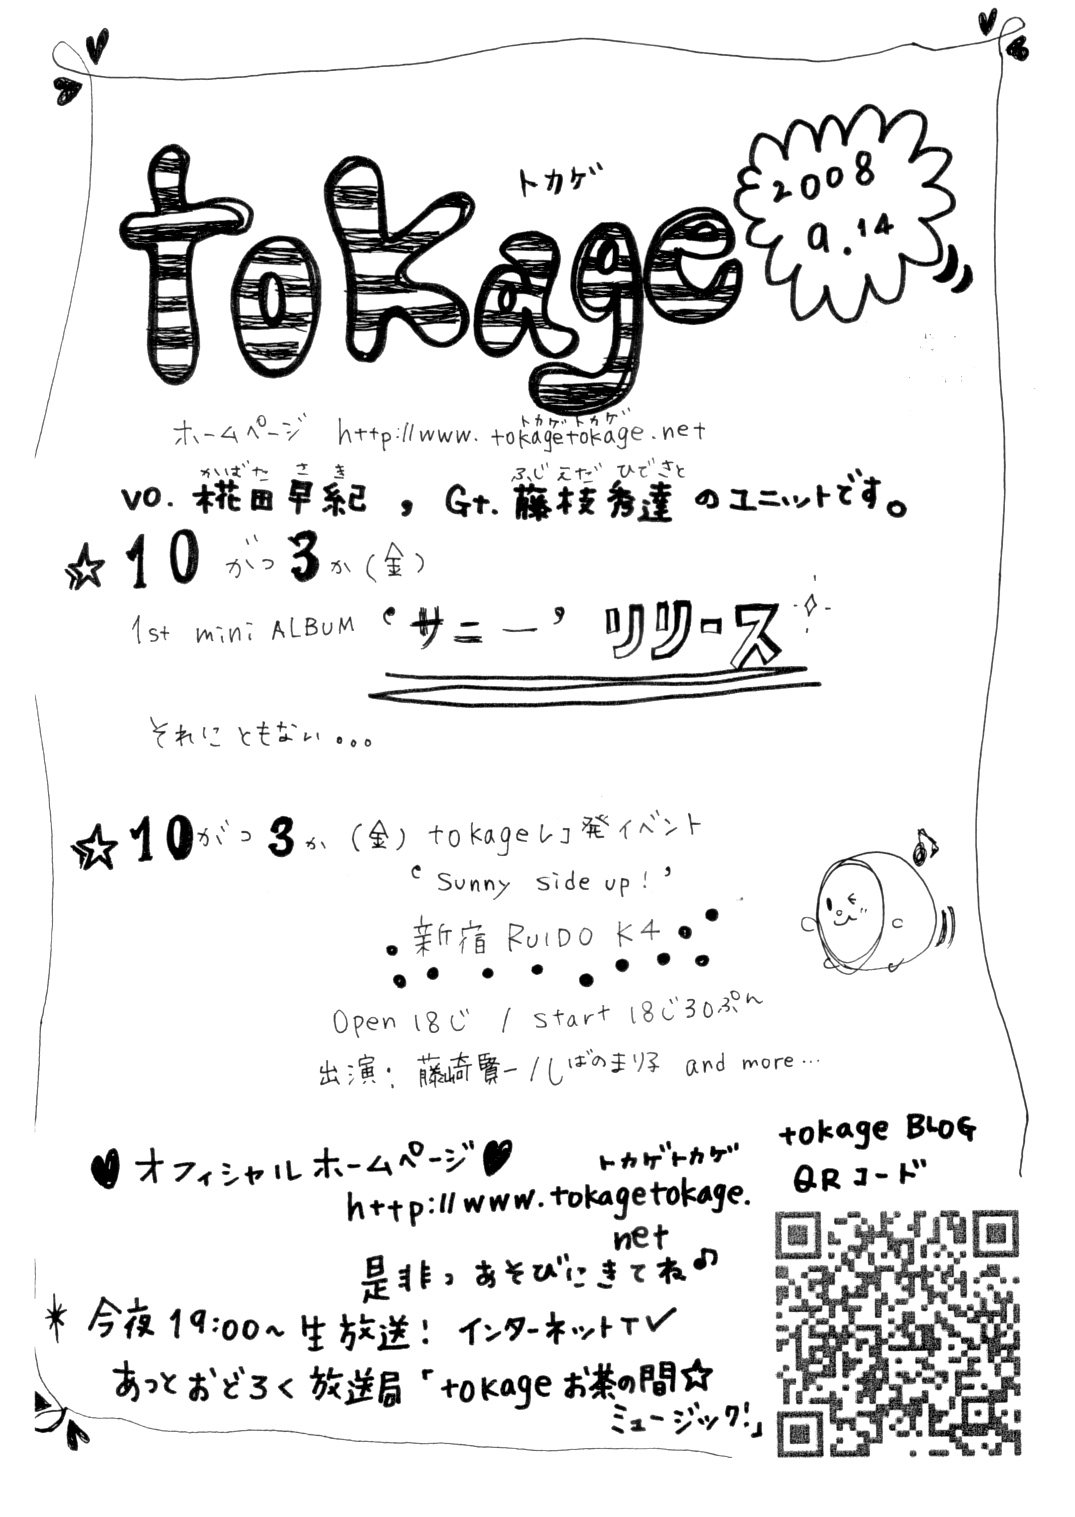 トカゲ
tokage
2008
9.14
ホームページ http://www.tokagetokage.net
トカゲトカゲ
かばた さき ふじえだ ひでさと
vo. 椛田早紀 , Gt. 藤枝秀達 のユニットです。
☆10がつ3か(金)
1st mini ALBUM ‘サニー’ リリース
それにともない...
☆10がつ3か(金) tokageレコ発イベント
‘sunny side up!’
新宿 RUIDO K4
Open 18じ / start 18じ30ぷん
出演: 藤崎賢一/しばのまり子 and more...
♥オフィシャルホームページ♥
トカゲトカゲ
http://www.tokagetokage.
net
是非っあそびにきてね♪
今夜19:00~生放送! インターネットTV
あっとおどろく放送局「tokageお茶の間☆
ミュージック!」
tokage BLOG
QRコード